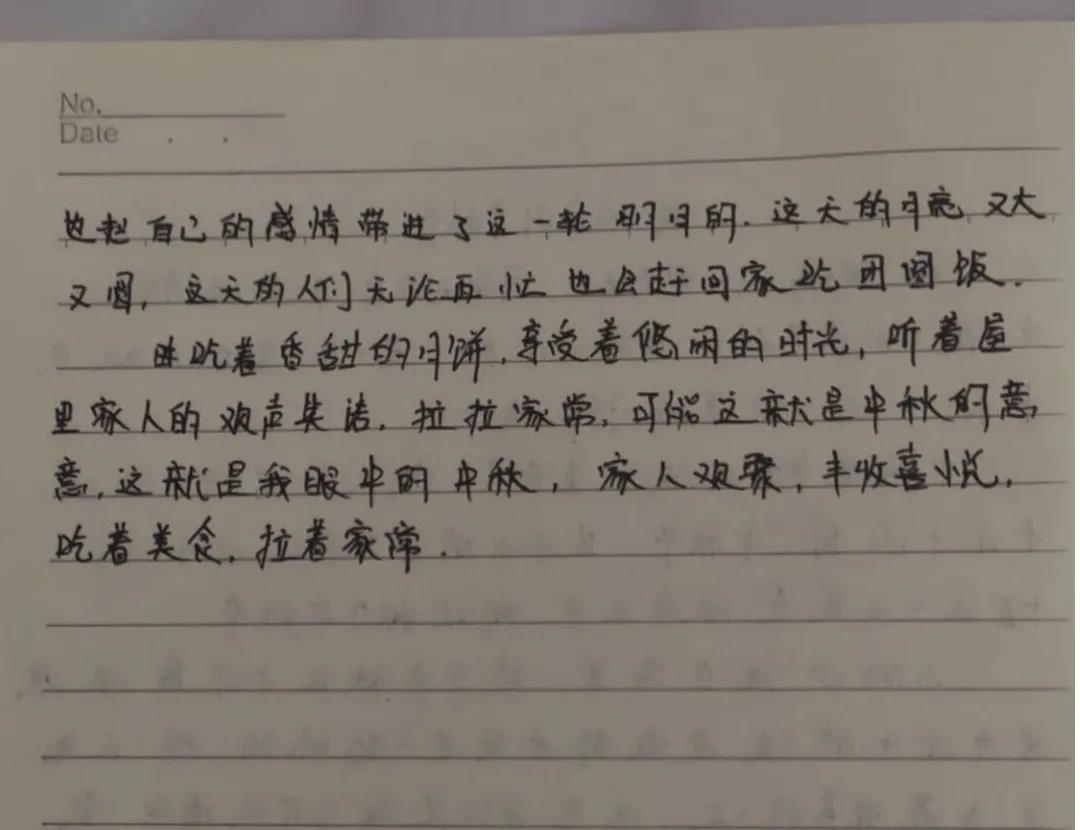 No.
Date
也把自己的感情带进了这一轮明月的. 这天的月亮又大
又圆, 这天的人们无论再忙也会赶回家吃团圆饭.
吃着香甜的月饼, 享受着悠闲的时光, 听着屋
里家人的欢声笑语. 拉拉家常, 可能这就是中秋的意
意, 这就是我眼中的中秋, 家人欢聚, 丰收喜悦.
吃着美食, 拉着家常.